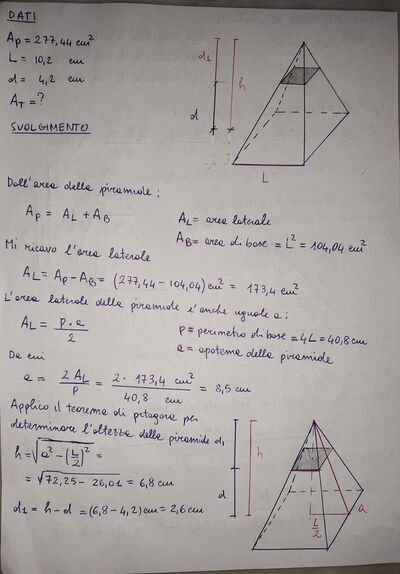 DATI
Ap = 277,44 cm²
L = 10,2 cm
d = 4,2 cm
A_T = ?
SVOLGIMENTO
d1
h
d
L
Dall'area della piramide:
A_P = A_L + A_B
A_L = area laterale
A_B = area di base = L² = 104,04 cm²
Mi ricavo l'area laterale
A_L = A_P - A_B = (277,44 - 104,04) cm² = 173,4 cm²
L'area laterale della piramide è anche uguale a:
A_L = p · a / 2
p = perimetro di base = 4L = 40,8 cm
a = apotema della piramide
Da cui
a = 2 A_L / p = 2 · 173,4 cm² / 40,8 cm = 8,5 cm
Applico il teorema di pitagora per
determinare l'altezza della piramide d1
h = √(a² - (L/2)²) =
= √(72,25 - 26,01) = 6,8 cm
d1 = h - d = (6,8 - 4,2) cm = 2,6 cm
h
d
L/2
a